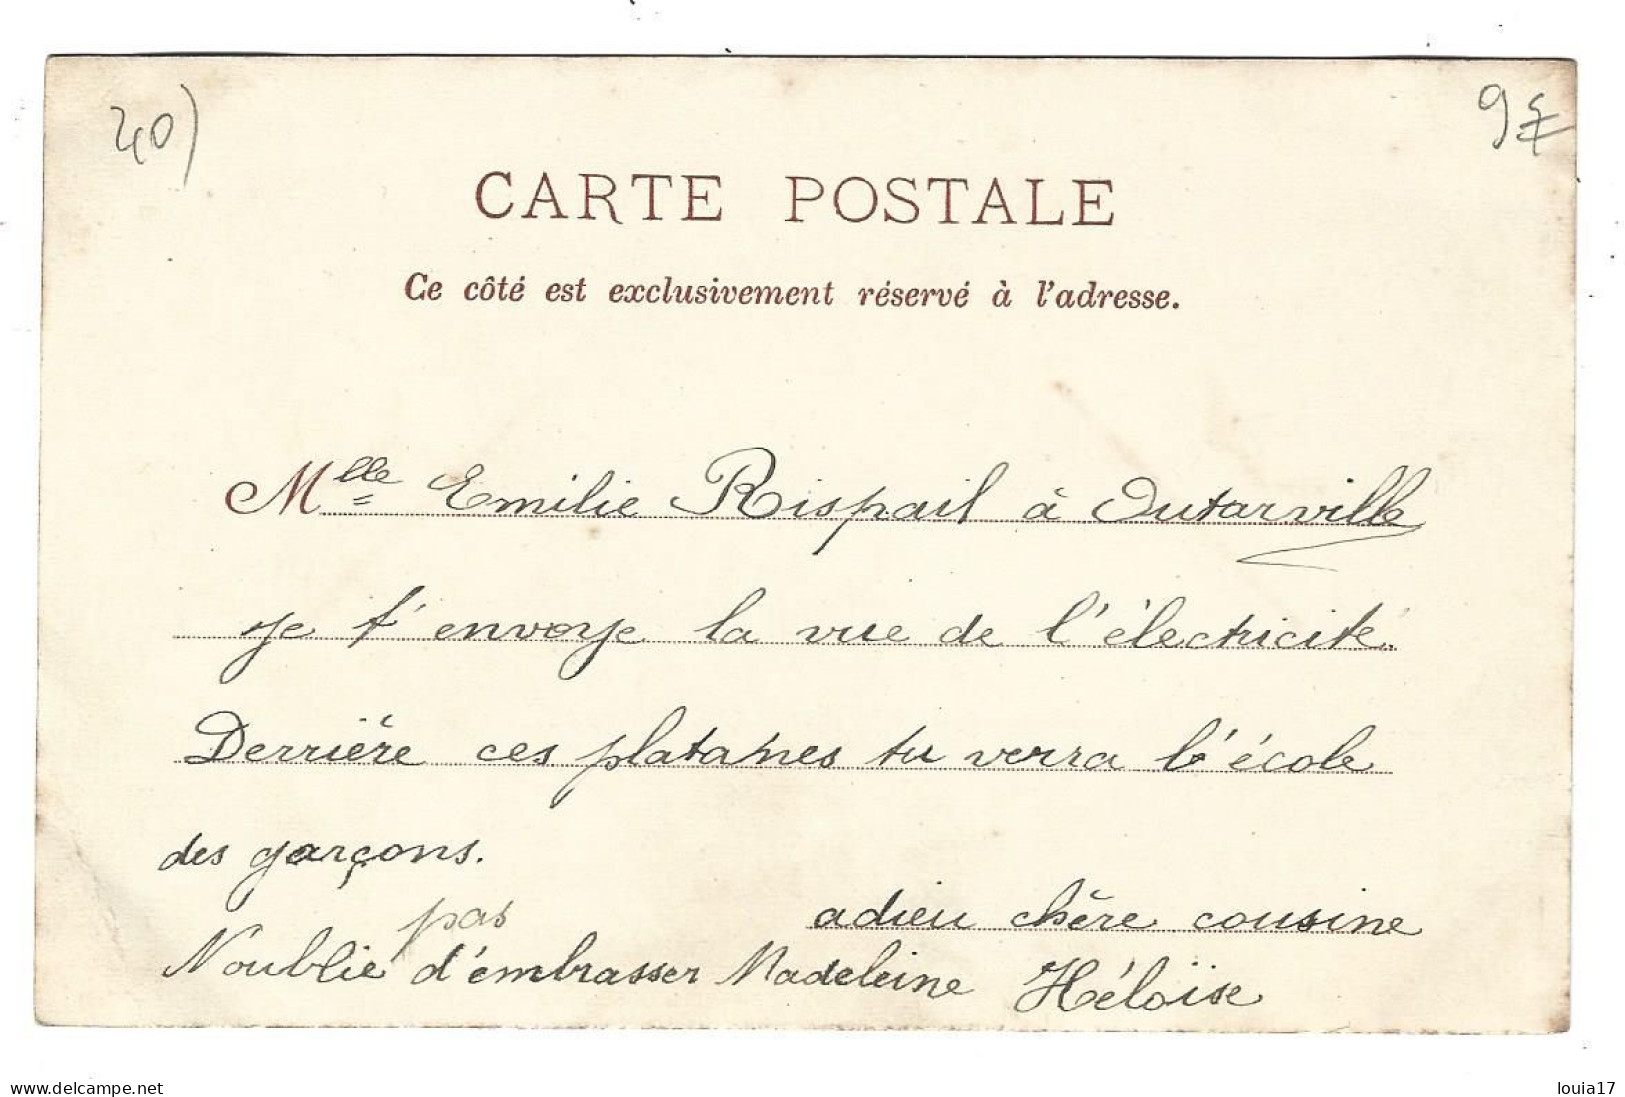 40)
9€
CARTE POSTALE
Ce côté est exclusivement réservé à l'adresse.
Mlle Emilie Rispail à Outarville
je t'envoye la vue de l'électricité.
Derrière ces platanes tu verra l'école
des garçons.
adieu chère cousine
pas
N'oublie d'embrasser Madeleine Héloïse
www.delcampe.net
louia17